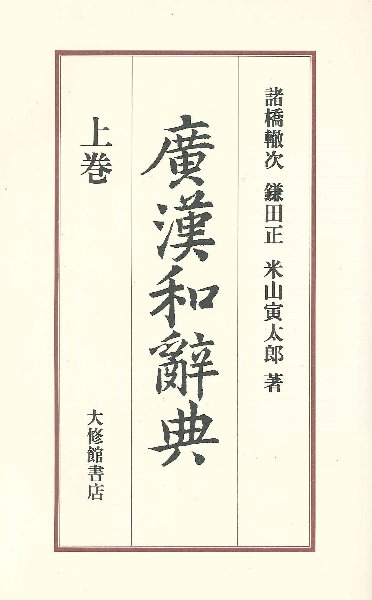 諸橋轍次 鎌田正 米山寅太郎 著
廣漢和辭典
上巻
大修館書店